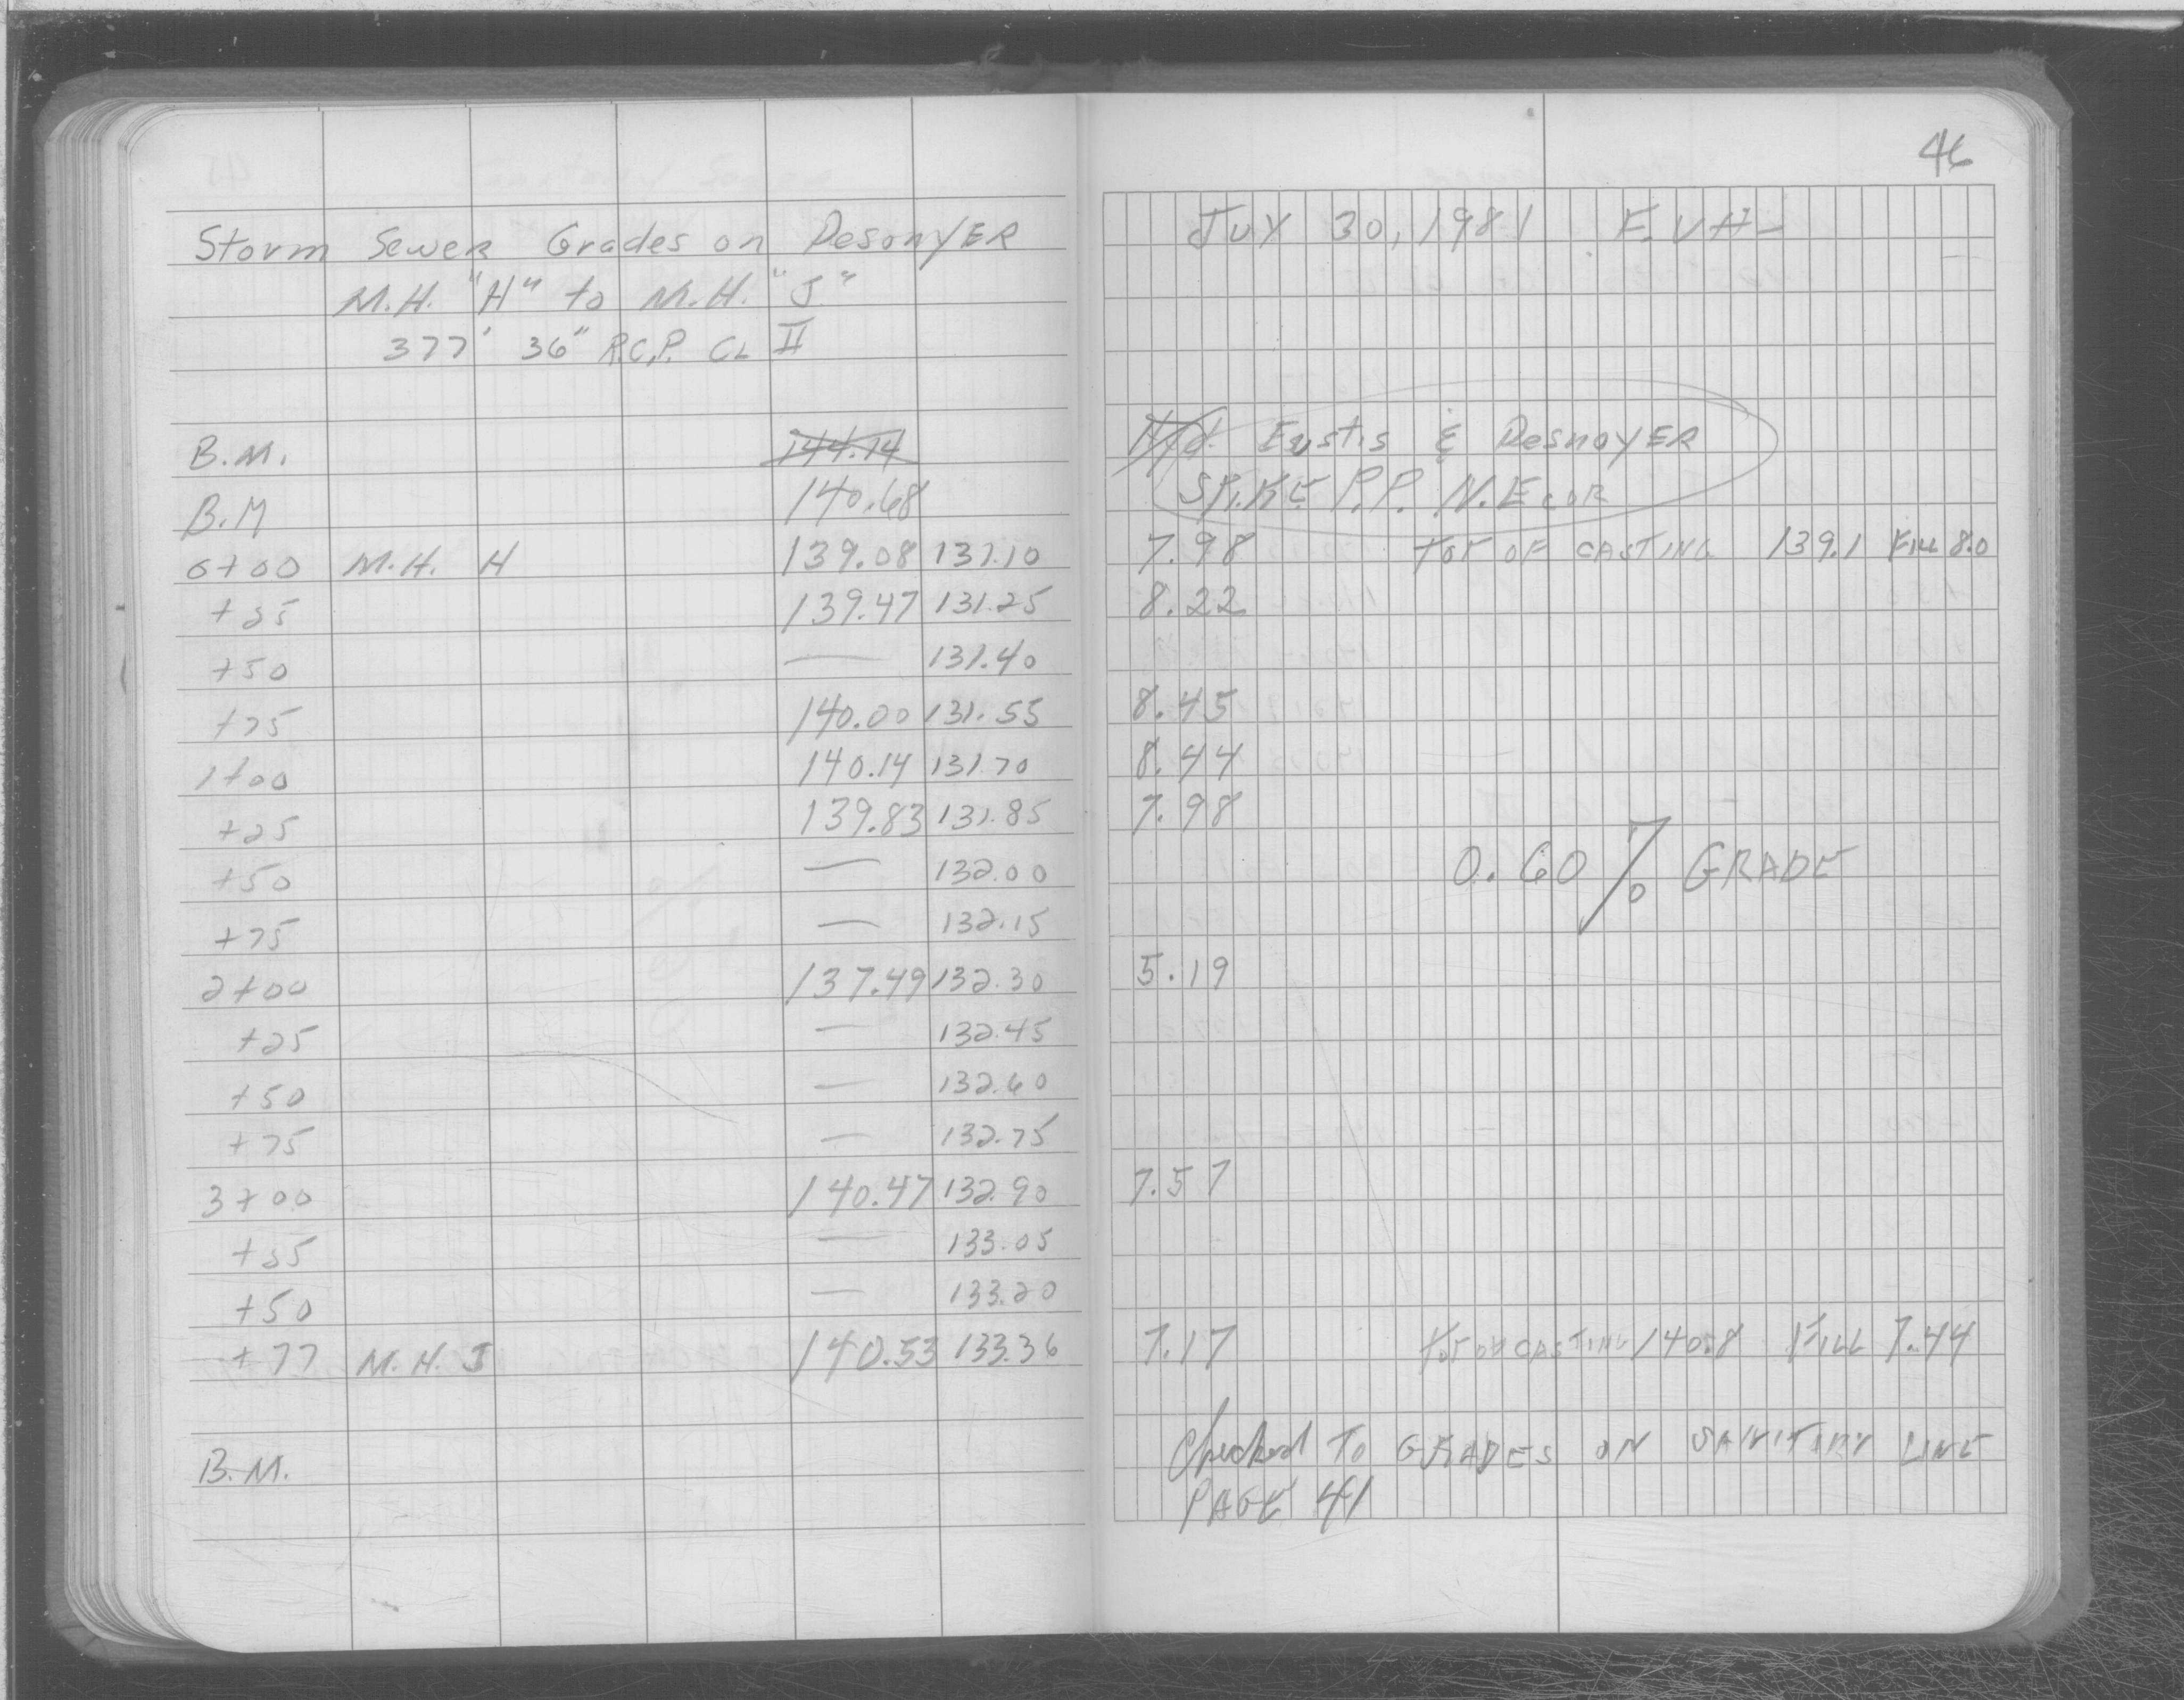 Storm Sewer Grades on DesonyER
M.H. "H" to M.H. "J"
377' 36" R.C.P. CL II
B.M. 144.14
B.M 140.68
0+00 M.H. H 139.08 131.10
+25 139.47 131.25
+50 — 131.40
+75 140.00 131.55
1+00 140.14 131.70
+25 139.83 131.85
+50 — 132.00
+75 — 132.15
2+00 137.49 132.30
+25 — 132.45
+50 — 132.60
+75 — 132.75
3+00 140.47 132.90
+25 — 133.05
+50 — 133.20
+77 M.H. J 140.53 133.36
B.M.
46
JUY 30, 1981 F.VH
Hyd. Eustis & DesnoyER
SPIKE P.P. N.E COR
7.98 TOP OF CASTING 139.1 FILL 8.0
8.22
8.45
8.44
7.98
0.60 % GRADE
5.19
7.57
7.17 TOP OF CASTING 140.8 FILL 7.44
Checked TO GRADES ON SANITARY LINE
PAGE 41